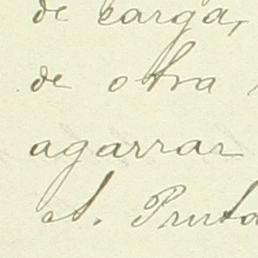 de carga,
de otra
agarrar
A. Pruta